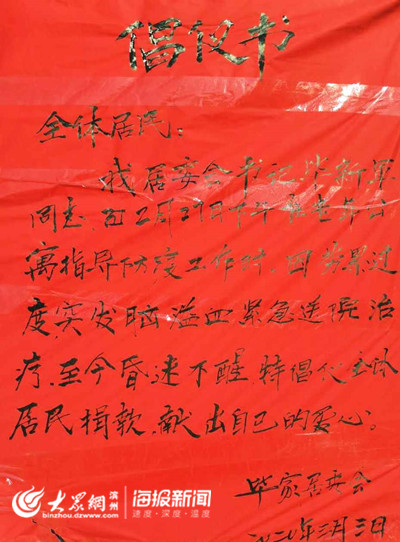 倡仪书
全体居民:
我居委会书记毕新军
同志,在2月29日下午在
寓指导防疫工作时,因劳累过
度突发脑溢血紧急送院治
疗,至今昏迷不醒,特倡仪全体
居民捐款,献出自己的爱心;
毕家居委会
二〇二〇年三月三日
大众网 滨州 海报新闻
binzhou.dzwww.com 速度·深度·温度